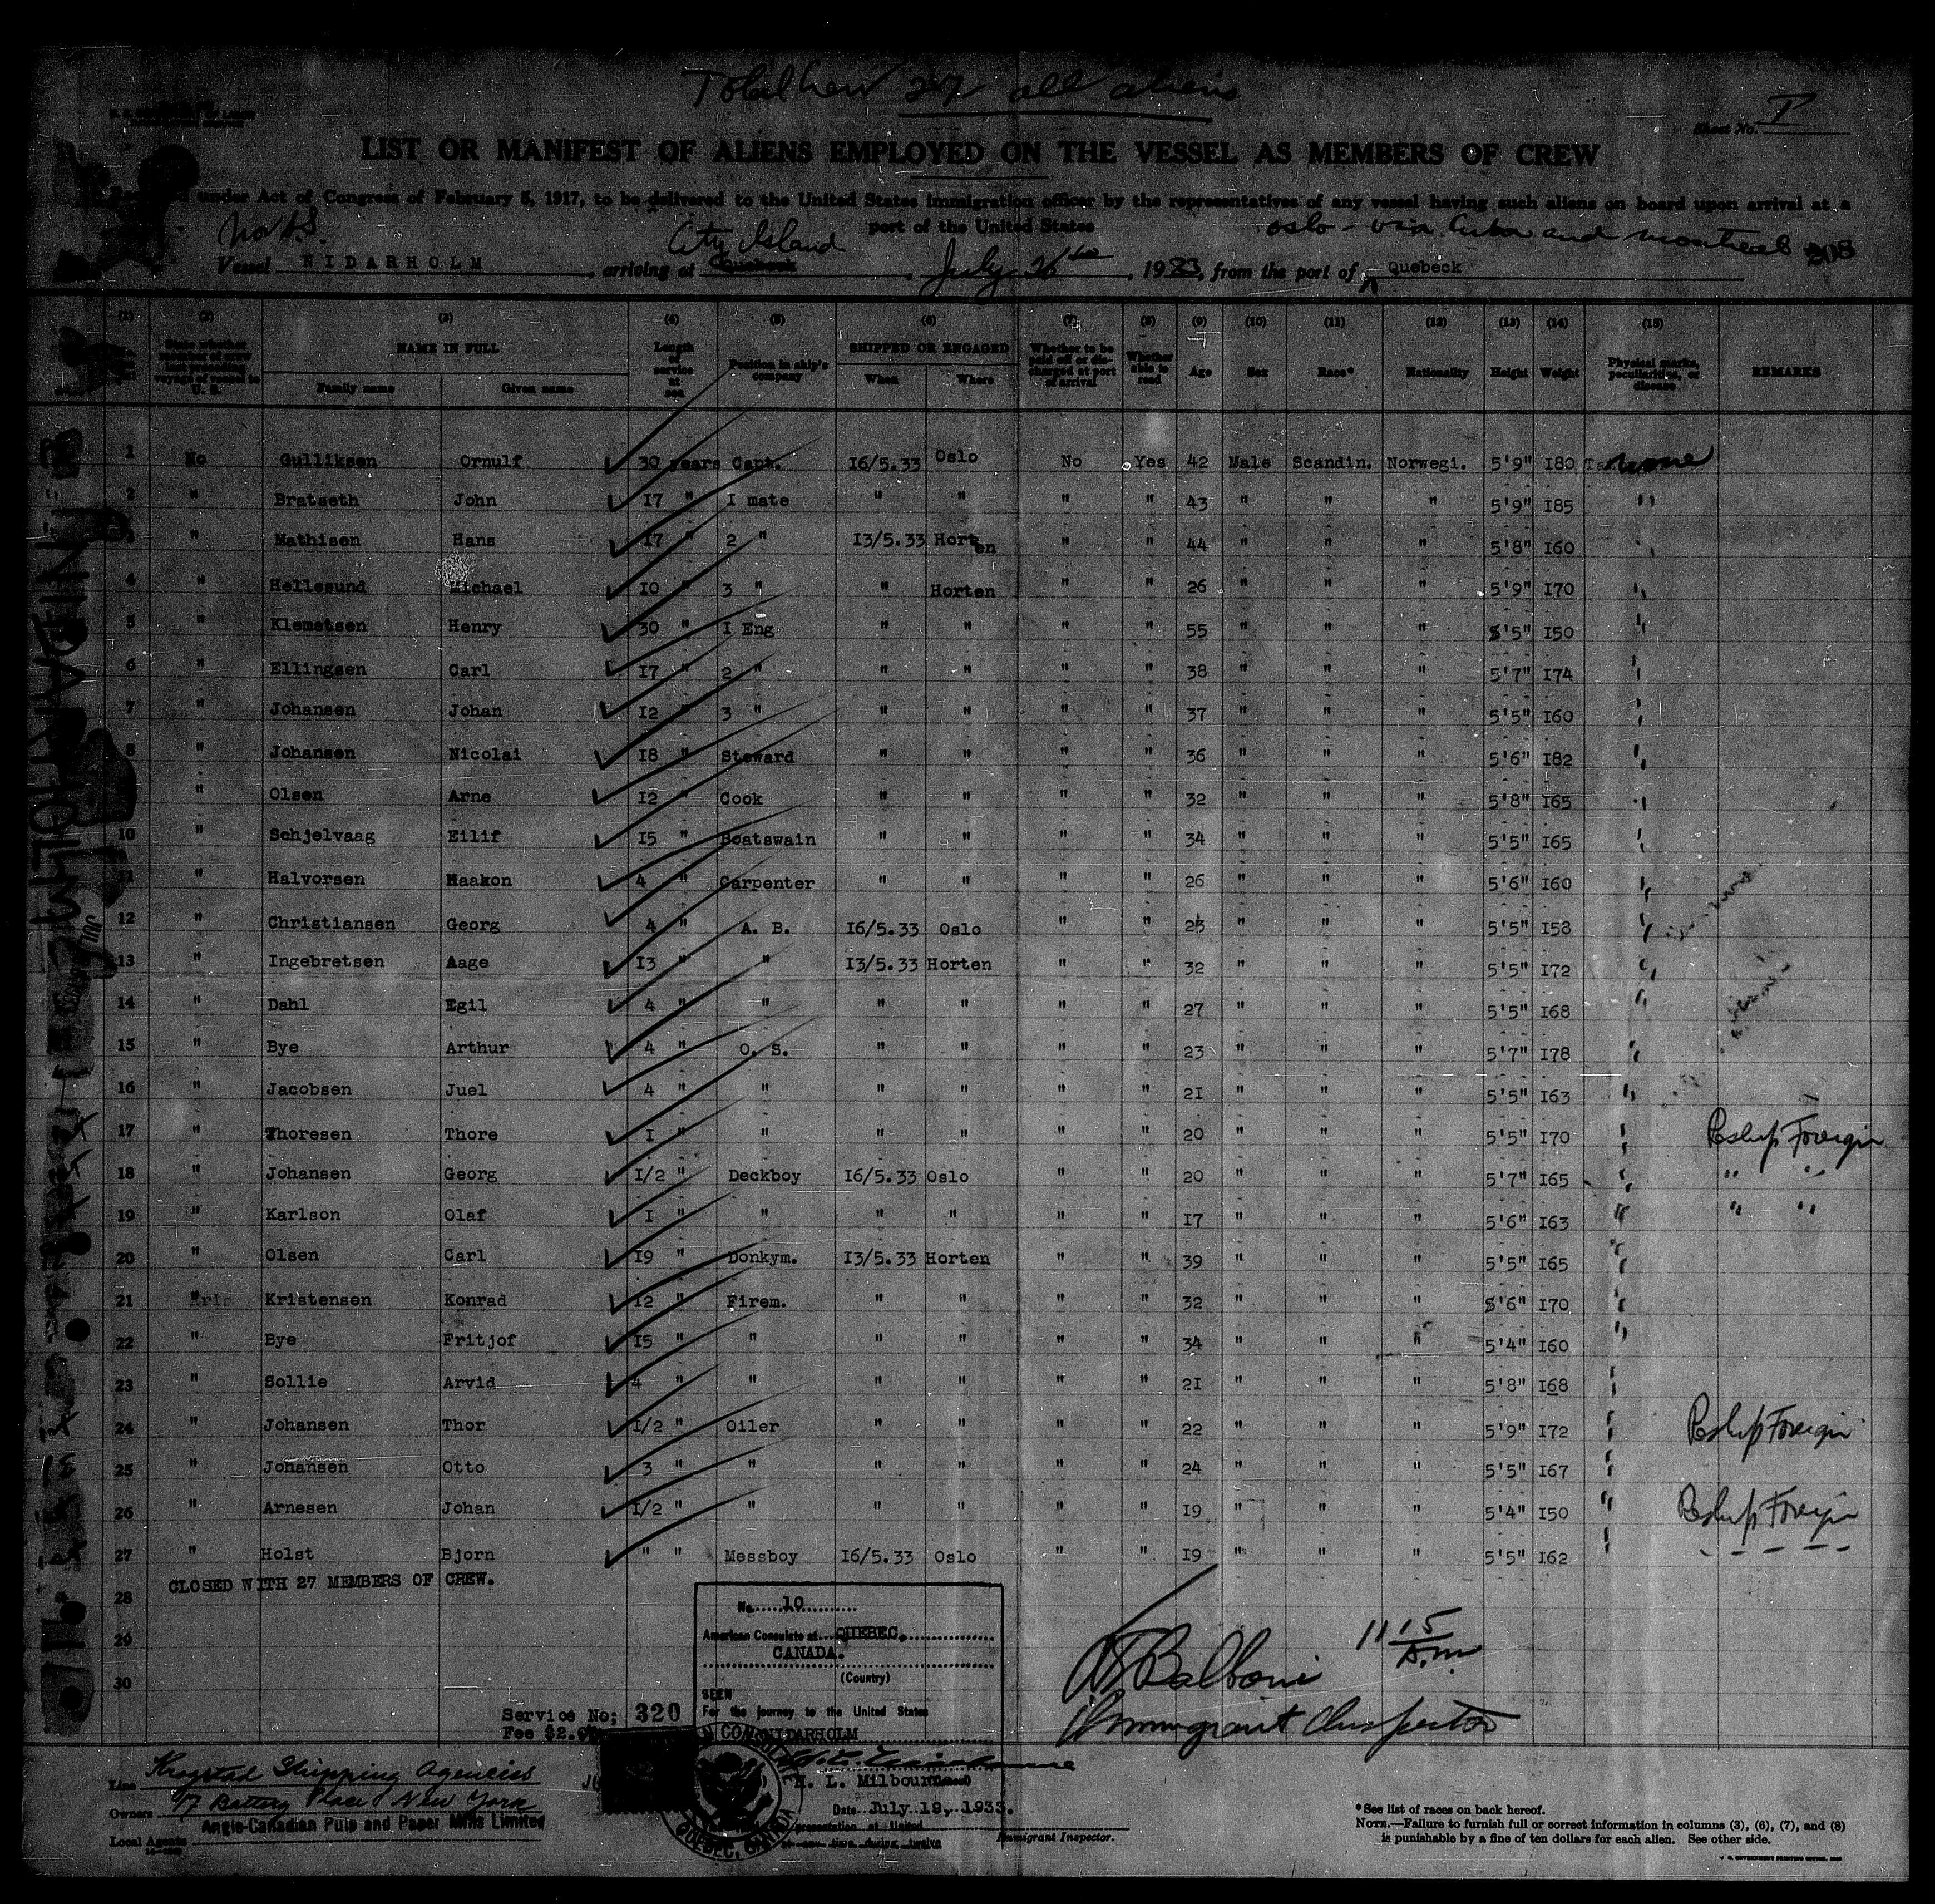 Total Crew 27 all aliens
Sheet No. I
LIST OR MANIFEST OF ALIENS EMPLOYED ON THE VESSEL AS MEMBERS OF CREW
under Act of Congress of February 5, 1917, to be delivered to the United States immigration officer by the representatives of any vessel having such aliens on board upon arrival at a
port of the United States
City Island oslo - via Cuba and montreal 208
Vessel NIDARHOLM, arriving at Quebeck, July 26th, 1933, from the port of Quebeck
(1) (2) (3) (4) (5) (6) (7) (8) (9) (10) (11) (12) (13) (14) (15)
NAME IN FULL Length of service at sea Position in ship's company SHIPPED OR ENGAGED Whether to be paid off or discharged at port of arrival Whether able to read Age Sex Race* Nationality Height Weight Physical marks, peculiarities, or disease REMARKS
Family name Given name When Where
1 No Gulliksen Ornulf 30 years Capt. 16/5.33 Oslo No Yes 42 Male Scandin. Norwegi. 5'9" I80 none
2 " Bratseth John I7 " I mate " " " " 43 " " " 5'9" I85 "
3 " Mathisen Hans I7 " 2 " I3/5.33 Horten " " 44 " " " 5'8" I60 "
4 " Hellesund Michael I0 " 3 " " Horten " " 26 " " " 5'9" I70 "
5 " Klemetsen Henry 30 " I Eng " " " " 55 " " " 5'5" I50 "
6 " Ellingsen Carl I7 " 2 " " " " " 38 " " " 5'7" I74 "
7 " Johansen Johan I2 " 3 " " " " " 37 " " " 5'5" I60 "
8 " Johansen Nicolai I8 " Steward " " " " 36 " " " 5'6" I82 "
" Olsen Arne I2 " Cook " " " " 32 " " " 5'8" I65 "
10 " Schjelvaag Eilif I5 " Boatswain " " " " 34 " " " 5'5" I65 "
11 " Halvorsen Haakon 4 " Carpenter " " " " 26 " " " 5'6" I60 "
12 " Christiansen Georg 4 " A. B. I6/5.33 Oslo " " 25 " " " 5'5" I58 "
13 " Ingebretsen Aage I3 " " I3/5.33 Horten " " 32 " " " 5'5" I72 "
14 " Dahl Egil 4 " " " " " " 27 " " " 5'5" I68 "
15 " Bye Arthur 4 " O. S. " " " " 23 " " " 5'7" I78 "
16 " Jacobsen Juel 4 " " " " " " 2I " " " 5'5" I63 "
17 " Thoresen Thore I " " " " " " 20 " " " 5'5" I70 " Reship Foreign
18 " Johansen Georg I/2 " Deckboy I6/5.33 Oslo " " 20 " " " 5'7" I65 " " "
19 " Karlson Olaf I " " " " " " I7 " " " 5'6" I63 " " "
20 " Olsen Carl I9 " Donkym. I3/5.33 Horten " " 39 " " " 5'5" I65 "
21 " Kristensen Konrad I2 " Firem. " " " " 32 " " " 5'6" I70 "
22 " Bye Fritjof I5 " " " " " " 34 " " " 5'4" I60 "
23 " Sollie Arvid 4 " " " " " " 2I " " " 5'8" I68 "
24 " Johansen Thor I/2 " Oiler " " " " 22 " " " 5'9" I72 " Reship Foreign
25 " Johansen Otto 3 " " " " " " 24 " " " 5'5" I67 "
26 " Arnesen Johan I/2 " " " " " " I9 " " " 5'4" I50 " Reship Foreign
27 " Holst Bjorn " " Messboy I6/5.33 Oslo " " I9 " " " 5'5" I62 "
CLOSED WITH 27 MEMBERS OF CREW.
28
29
30
No. 10
American Consulate at QUEBEC,
CANADA.
(Country)
SEEN
For the journey to the United States
NIDARHOLM
Service No; 320
Fee $2.00
H. L. Milbourne
Date July 19, 1933.
QUEBEC, CANADA
Balboni
11 15 A.m
Immigrant Inspector
Immigrant Inspector.
Line Krogstad Shipping Agencies
Owners 17 Battery Place New York
Local Agents Anglo-Canadian Pulp and Paper Mills Limited
*See list of races on back hereof.
NOTE.—Failure to furnish full or correct information in columns (3), (6), (7), and (8)
is punishable by a fine of ten dollars for each alien. See other side.
NIDARHOLM